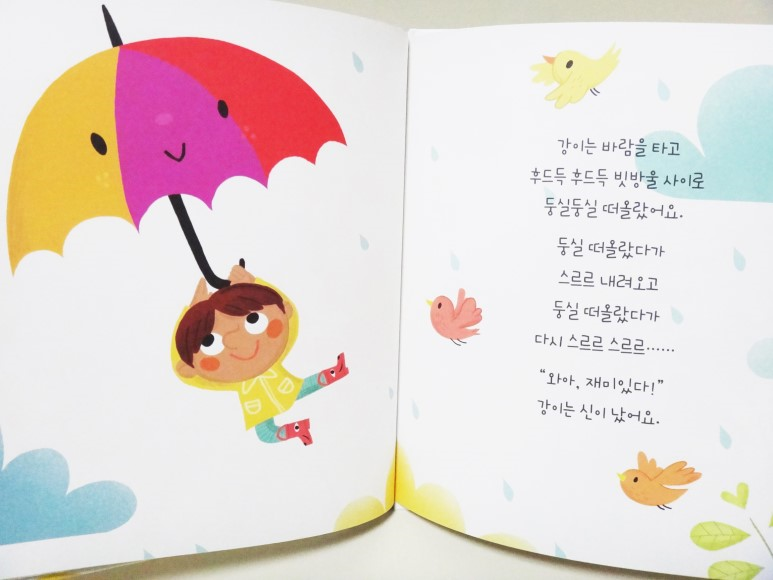 강이는 바람을 타고
후드득 후드득 빗방울 사이로
둥실둥실 떠올랐어요.
둥실 떠올랐다가
스르르 내려오고
둥실 떠올랐다가
다시 스르르 스르르……
“와아, 재미있다!”
강이는 신이 났어요.